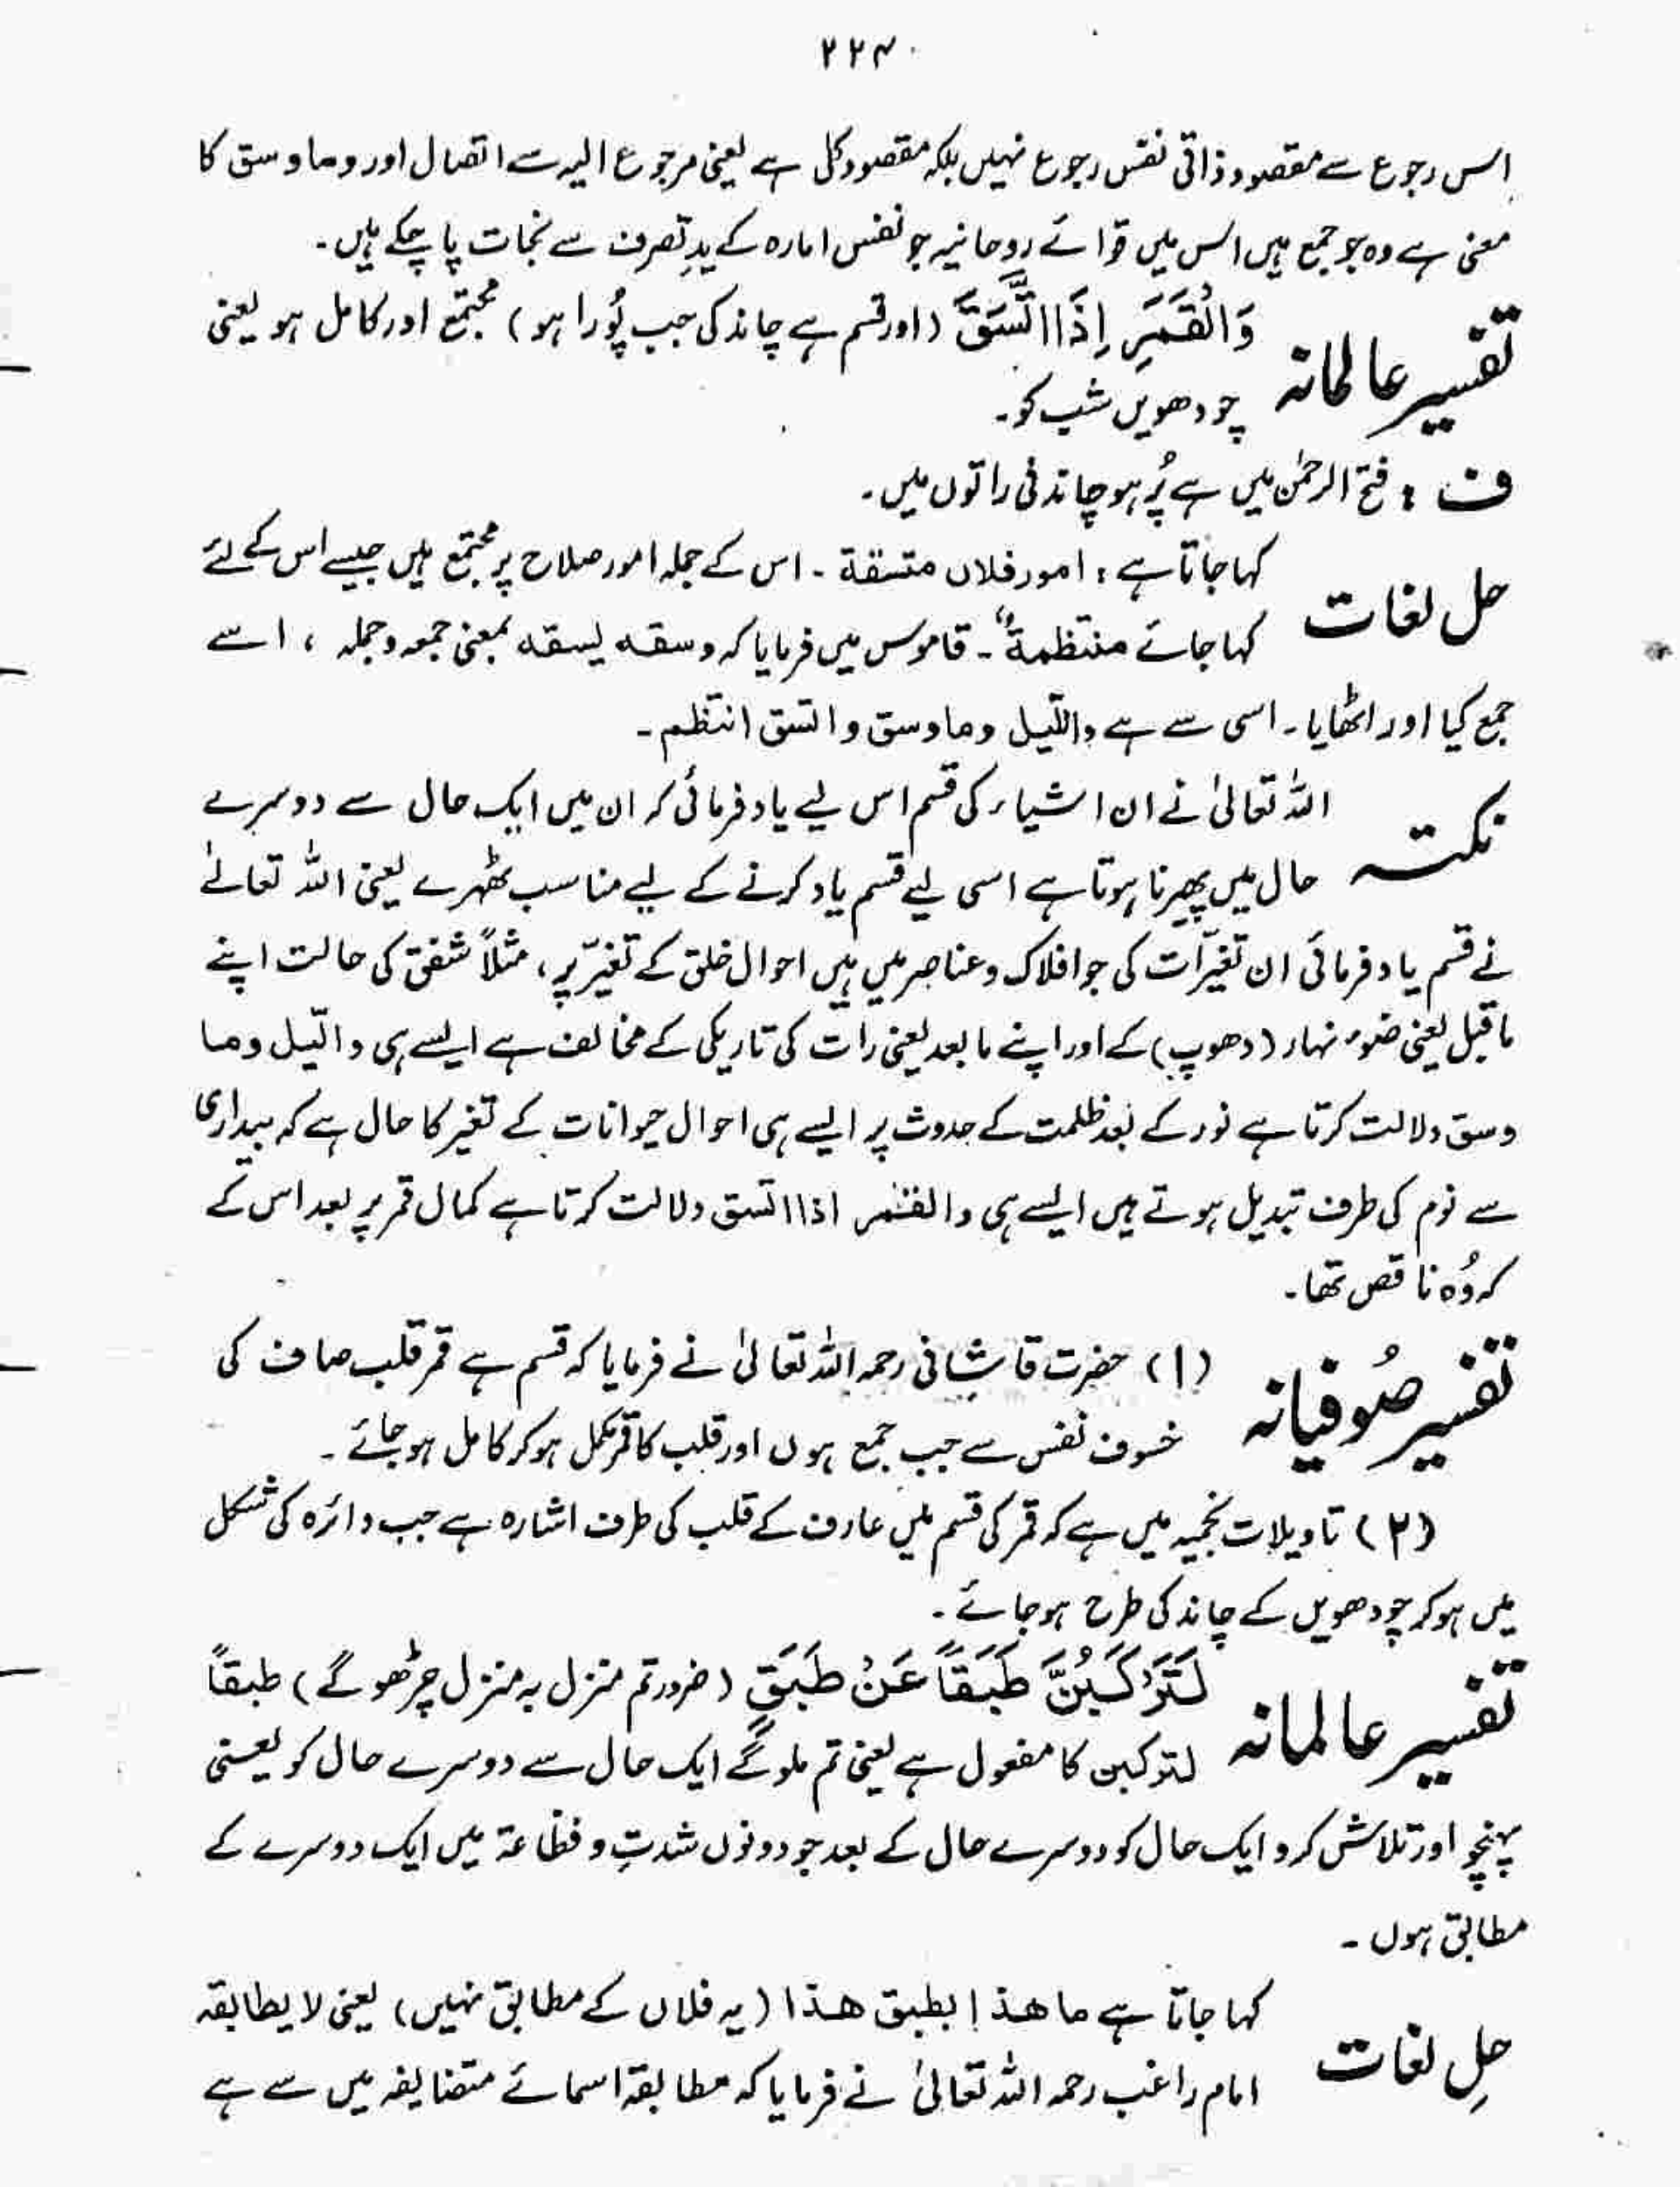 ۲۲۴
اس رجوع سے مقصود ذاتی نفس رجوع نہیں بلکہ مقصود کل ہے یعنی مرجوع الیہ سے اتصال اور وما وسق کا
معنی ہے وہ جو جمع ہیں اس میں قوائے روحانیہ جو نفس امارہ کے یدِ تصرف سے نجات پا چکے ہیں۔
تفسیر عالمانہ وَالْقَمَرِ اِذَا اتَّسَقَ (اور قسم ہے چاند کی جب پُورا ہو) مجتمع اور کامل ہو یعنی
چودھویں شب کو۔
ف : فتح الرحمٰن میں ہے پُر ہو چاندنی راتوں میں۔
حل لغات کہا جاتا ہے : امور فلاں متسقة ۔ اس کے جملہ امور صلاح پر مجتمع ہیں جیسے اس کے لئے
کہا جائے منتظمةٌ ۔ قاموس میں فرمایا کہ وسقه یسقه بمعنی جمعہ وحملہ ، اسے
جمع کیا اور اٹھایا۔ اسی سے ہے والّیل وما وسق واتسق انتظم ۔
نکتہ اللہ تعالیٰ نے ان اشیاء کی قسم اس لیے یاد فرمائی کہ ان میں ایک حال سے دوسرے
حال میں پھرنا ہوتا ہے اسی لیے قسم یاد کرنے کے لیے مناسب ٹھہرے یعنی اللہ تعالےٰ
نے قسم یاد فرمائی ان تغیرّات کی جو افلاک و عناصر میں ہیں احوال خلق کے تغیّر پر، مثلاً شفق کی حالت اپنے
ماقبل یعنی ضوء نہار (دھوپ) کے اور اپنے مابعد یعنی رات کی تاریکی کے مخالف ہے ایسے ہی والّیل وما
وسق دلالت کرتا ہے نور کے بعد ظلمت کے حدوث پر ایسے ہی احوال حیوانات کے تغیر کا حال ہے کہ بیداری
سے نوم کی طرف تبدیل ہوتے ہیں ایسے ہی والقمر اذا اتسق دلالت کرتا ہے کمال قمر پر بعد اس کے
کہ وُہ ناقص تھا۔
تفسیر صُوفیانہ (۱) حضرت قاشانی رحمہ اللہ تعالیٰ نے فرمایا کہ قسم ہے قمر قلب صاف کی
خسوف نفس سے جب جمع ہوں اور قلب کا قمر مکمل ہوکر کامل ہو جائے ۔
(۲) تاویلات نجمیہ میں ہے کہ قمر کی قسم میں عارف کے قلب کی طرف اشارہ ہے جب دائرہ کی شکل
میں ہوکر چودھویں کے چاند کی طرح ہوجائے ۔
تفسیر عالمانہ لَتَرْكَبُنَّ طَبَقًا عَنْ طَبَقٍ (ضرور تم منزل بہ منزل چڑھو گے) طبقاً
لتركبن کا مفعول ہے یعنی تم ملو گے ایک حال سے دوسرے حال کو یعنی
پہنچو اور تلاش کرو ایک حال کو دوسرے حال کے بعد جو دونوں شدتِ و فظاعۃ میں ایک دوسرے کے
مطابق ہوں ۔
حلِ لغات کہا جاتا ہے ما ھذا بطبق ھذا (یہ فلاں کے مطابق نہیں) یعنی لا یطابقہ
امام راغب رحمہ اللہ تعالیٰ نے فرمایا کہ مطابقۃ اسمائے متضایفہ میں سے ہے